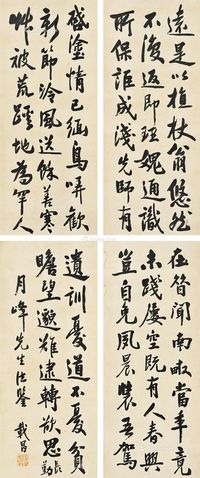 遠是以植杖翁悠然
不復返即理愧通識
所保詎成淺先師有
啟塗情已緬鳥哢歡
新節泠風送餘善寒
艸被荒蹊地為罕人
在昔聞南畝當年竟
未踐屢空既有人春興
豈自免夙晨裝吾駕
遺訓憂道不憂貧
瞻望邈難逮轉欲思長勤
月峰先生法鑒 戴昌